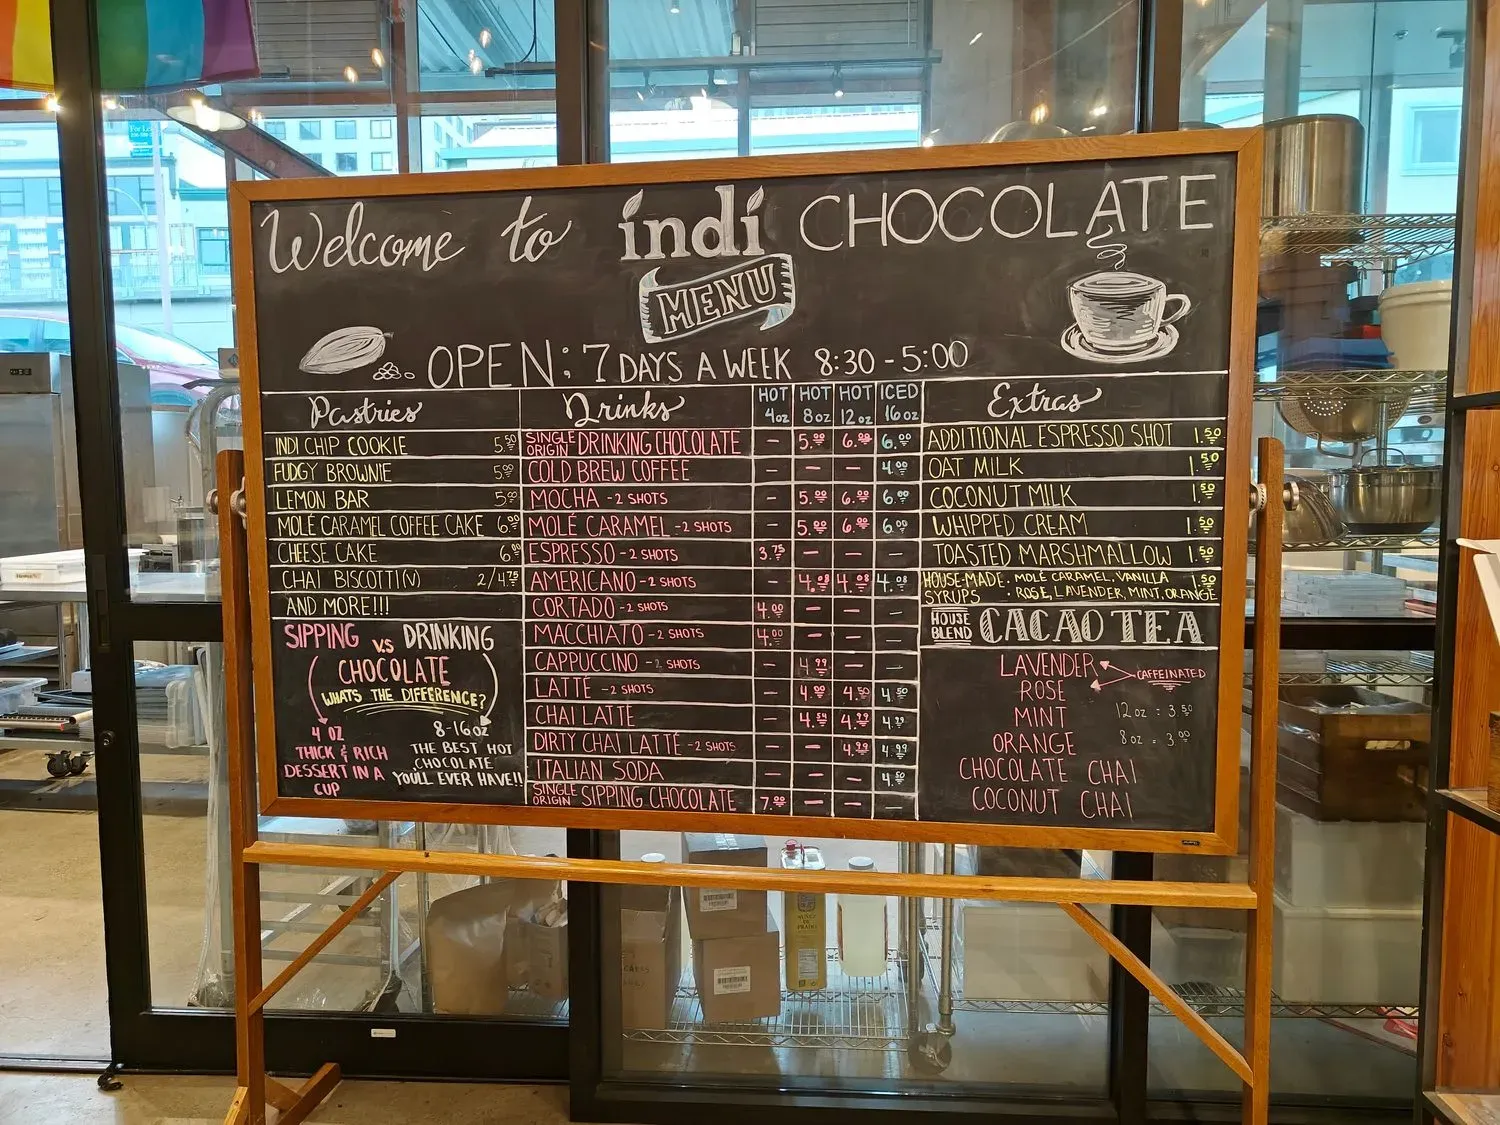 Welcome to indi CHOCOLATE
MENU
OPEN: 7 DAYS A WEEK 8:30 - 5:00
Pastries
INDI CHIP COOKIE 5.50
FUDGY BROWNIE 5.00
LEMON BAR 5.00
MOLÉ CARAMEL COFFEE CAKE 6.00
CHEESE CAKE 6.00
CHAI BISCOTTI (V) 2/4.75
AND MORE!!!
SIPPING VS DRINKING
CHOCOLATE
WHATS THE DIFFERENCE?
4 OZ
THICK & RICH
DESSERT IN A
CUP
8-16 OZ
THE BEST HOT
CHOCOLATE
YOU'LL EVER HAVE!!
Drinks HOT 4oz HOT 8oz HOT 12oz ICED 16oz
SINGLE ORIGIN DRINKING CHOCOLATE - 5.00 6.00 6.00
COLD BREW COFFEE - - - 4.00
MOCHA - 2 SHOTS - 5.00 6.00 6.00
MOLÉ CARAMEL - 2 SHOTS - 5.00 6.00 6.00
ESPRESSO - 2 SHOTS 3.75 - - -
AMERICANO - 2 SHOTS - 4.08 4.08 4.08
CORTADO - 2 SHOTS 4.00 - - -
MACCHIATO - 2 SHOTS 4.00 - - -
CAPPUCCINO - 2 SHOTS - 4.99 - -
LATTE - 2 SHOTS - 4.00 4.50 4.50
CHAI LATTE - 4.54 4.99
DIRTY CHAI LATTÉ - 2 SHOTS - - 4.99 4.99
ITALIAN SODA - - - 4.50
SINGLE ORIGIN SIPPING CHOCOLATE 7.00 - - -
Extras
ADDITIONAL ESPRESSO SHOT 1.50
OAT MILK 1.50
COCONUT MILK 1.50
WHIPPED CREAM 1.50
TOASTED MARSHMALLOW 1.50
HOUSE-MADE · MOLÉ CARAMEL, VANILLA 1.50
SYRUPS · ROSE, LAVENDER, MINT, ORANGE
HOUSE BLEND CACAO TEA
LAVENDER CAFFEINATED
ROSE
MINT 12 oz = 3.50
ORANGE 8 oz = 3.00
CHOCOLATE CHAI
COCONUT CHAI
For Le